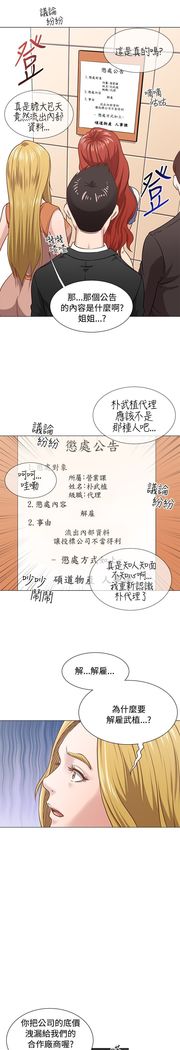 議論
紛紛
登
這是真的嗎?
懲處公告
真是膽大包天
竟然流出內部
資料...
嘀嘀
咕咕
登
那...那個公告
的內容是什麼啊?
姐姐...?
議論
紛紛
朴武植代理
應該不是
那種人吧...
懲處公告
處對象
所屬:營業課
姓名:朴武植
級職:代理
2. 懲處內容
解雇
2. 事由
流出內部資料
讓投標公司不當得利
- 懲處方式如上 -
碩道物產 人
呵呵...
哇嘞
議論
紛紛
吵吵
鬧鬧
真是知人知面
不知心啊...
我重新認識
朴代理了
解...解雇...
為什麼要
解雇武植...?
你把公司的底價
洩漏給我們的
合作廠商喔?